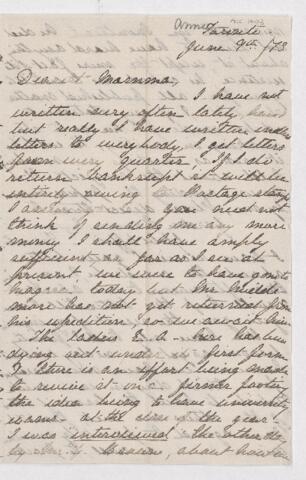 Annie
Toronto
June 9th /73
Dearest Mamma,
I have not
written very often lately
but really I have written
letters to everybody, I get letters
from every quarter. If I do
return bankrupt it will be
entirely owing to Postage stamps
I assure you. You must not
think of sending me any more
money I shall have amply
sufficient as far as I see at
present. We were to have gone to
today but Mr Middle
more has not yet returned from
his expedition, so we await him.
The Ladies E. A. here has been
dying out under first form
& there is an effort being made
to revive it on a firmer footing
the idea being to have university
exams at the close of the year.
I was interviewed the other day
by about how